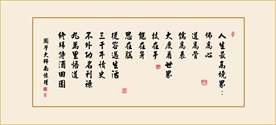 人生最高境界：
佛為心
道為骨
儒為表
大度看世界
技在手
能在身
思在腦
從容過生活
三千年讀史
不外功名利祿
九萬里悟道
終歸詩酒田園
國學大師南懷瑾